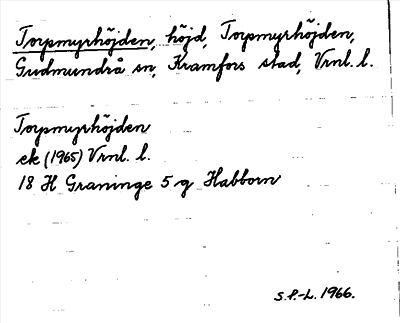 Torpmyrhöjden, höjd, Torpmyrhöjden,
Gudmundrå sn, Kramfors stad, Vrnl. l.
Torpmyrhöjden
ek (1965) Vrnl. l.
18 H Graninge 5 g Habborn
S.P.-L. 1966.